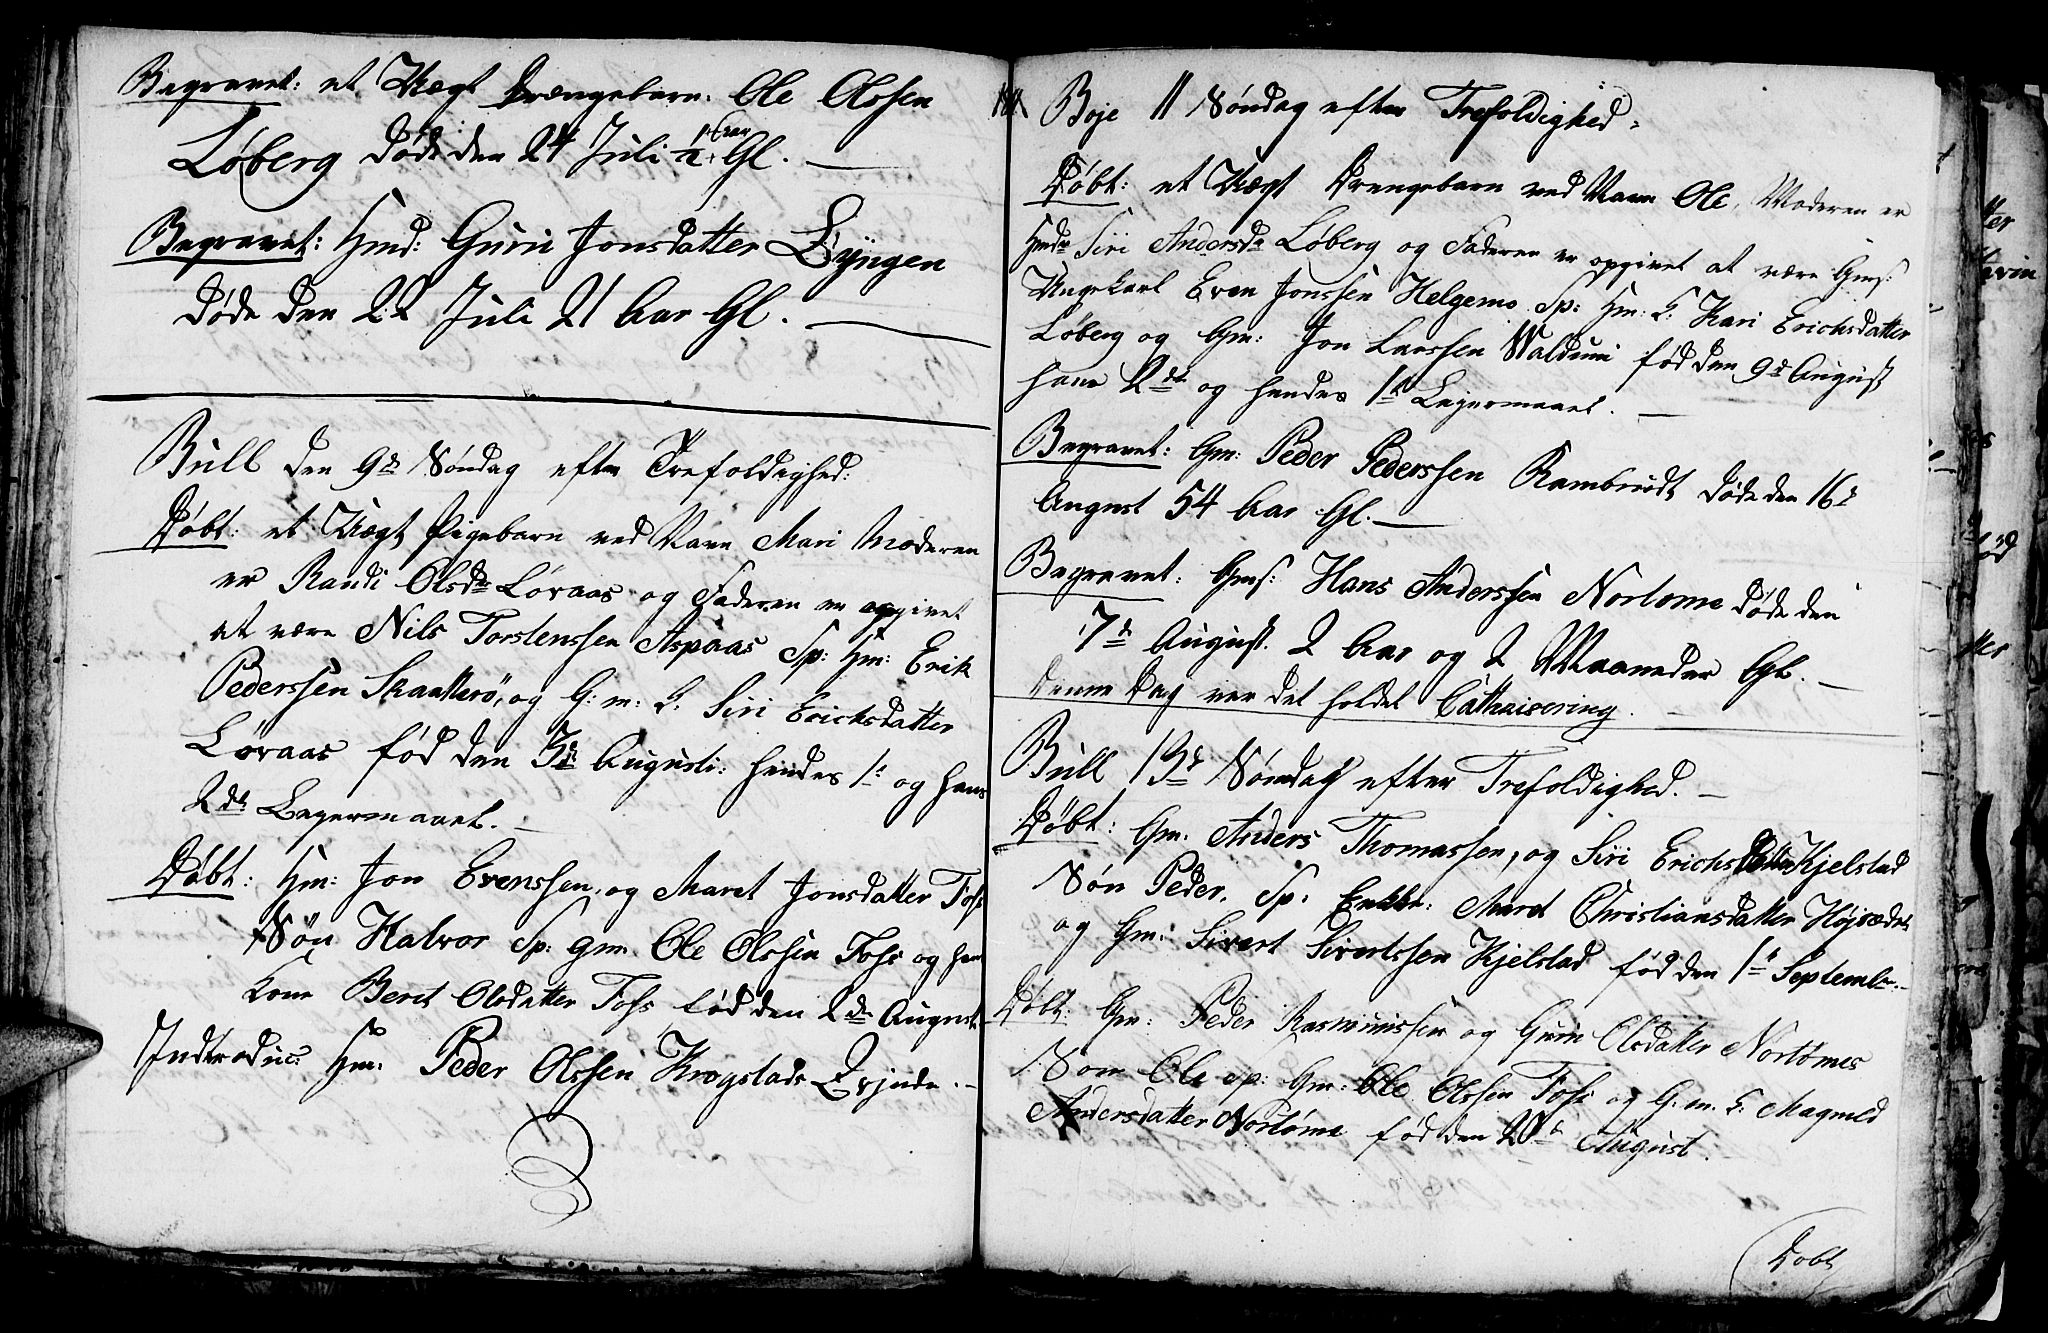 Begravet: et Uægt Drængebarn: Ole Olssen
Løberg døde den 24 Juli Gl.
Begravet: Hmd: Guru Jonsdatter Lÿngen
døde den 22 Juli 21 Aar Gl.
Bull den 9de Søndag efter Trefoldighed:
Døbt: et Uægt Pigebarn ved Navn Mari Moderen
er Randi Olsdr Løraas og Faderen er opgivet
at være Nils Torstenssen Aspaas Sp: Hm: Erik
Pederssen Skaatterö, og G: m: K: Siri Erichsdatter
Løraas fød den 3de Augusti: hendes 1te og hans
2de Legermaael.
Døbt: Hm: Jon Evenssen, og Maret Jonsdatter Foss
Søn Halvor Sp: Gm. Ole Olssen Foss og hans
Kone Beret Olsdatter Foss fød den 2de August
Introduc: Hm: Peder Olssen Krogstads Qvinde.
Boje 11 Søndag efter Trefoldighed.
Døbt: et Uægt Drengebarn ved Navn Ole, Moderen er
Hmdr Siri Andersdr Løberg og Faderen er opgivet at være Gms:
Ungekarl Even Jonssen Helgemo Sp: Hm: K: Kari Erichsdatter
Løberg og Gm: Jon Larssen Waldum fød den 9de August
hans 2det og hendes 1te Legermaael.
Begravet: Gm: Peder Pederssen Rambrudt døde den 16de
August 54 Aar Gl.
Begravet: Gms: Hans Anderssen Nortøme døde den
17de August. 2 Aar og 2 Maaneder Gl.
Denne Dag var det holdet Cathaisering.
Bull 13de Søndag efter Trefoldighed.
Døbt: Gm: Anders Thomassen, og Siri Erichsdatter Kjelstad
Søn Peder. Sp: Enkke: Maret Christiansdatter
og Gm: Sivert Sivertssen Kjelstad fød den 1te Septembr.
Døbt: Gm: Peder Rasmussen og Guru Olsdatter Nortømes
Søn Ole Sp: Gm: Ole Olssen Foss og G: m. K: Magnild
Andersdatter Nortøme fød den August.
Døbt